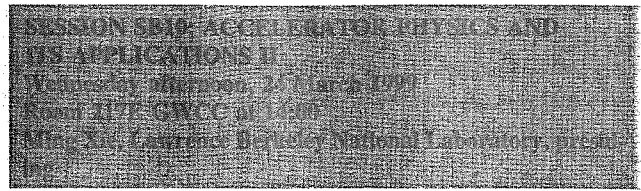 SESSION SP19: ACCELERATOR PHYSICS AND
ITS APPLICATIONS II
Wednesday afternoon, 24 March 1999
Room 217E, GWCC at 14:00
Ming Xie, Lawrence Berkeley National Laboratory, presid-
ing